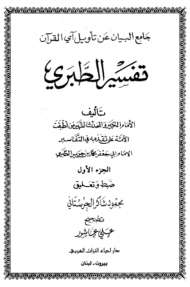 جامع البيان عن تأويل آي القرآن
تفسير الطبري
تأليف
الجزء الأول
ضبط وتعليق
محمود شاكر الحرستاني
تصحيح
علي عاشور
دار إحياء التراث العربي
بيروت - لبنان